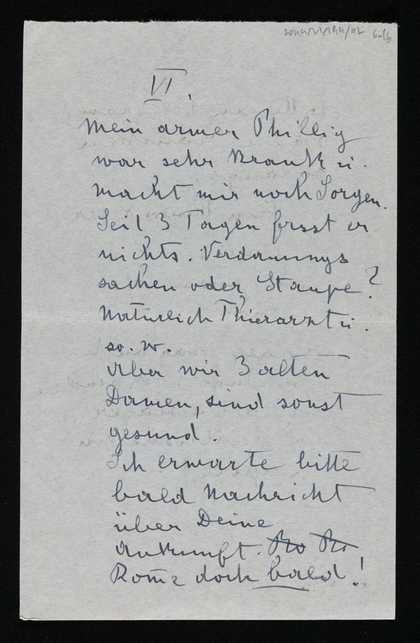 VI.
Mein armer Phillig
war sehr krank u.
macht mir noch Sorgen.
Seit 3 Tagen frsst er
nichts. Verdauungs
sachen oder Staupe?
Natürlich Thierarzt u.
so. w.
Aber wir 3 alten
Damen, sind sonst
gesund.
Ich erwarte bitte
bald Nachricht
über Deine
Ankunft. Ko Ko
Kome doch bald!